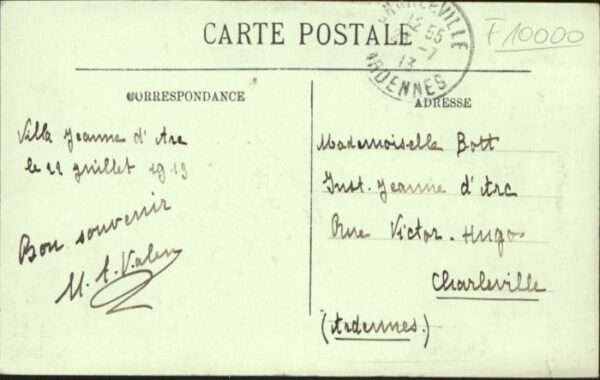 CARTE POSTALE
CHARLEVILLE
12 55
-7
13
ARDENNES
F10000
CORRESPONDANCE
ADRESSE
Villa Jeanne d'Arc
le 22 Juillet 1913
Bon souvenir
Mademoiselle Bott
Inst. Jeanne d'Arc
Rue Victor-Hugo
Charleville
(Ardennes.)